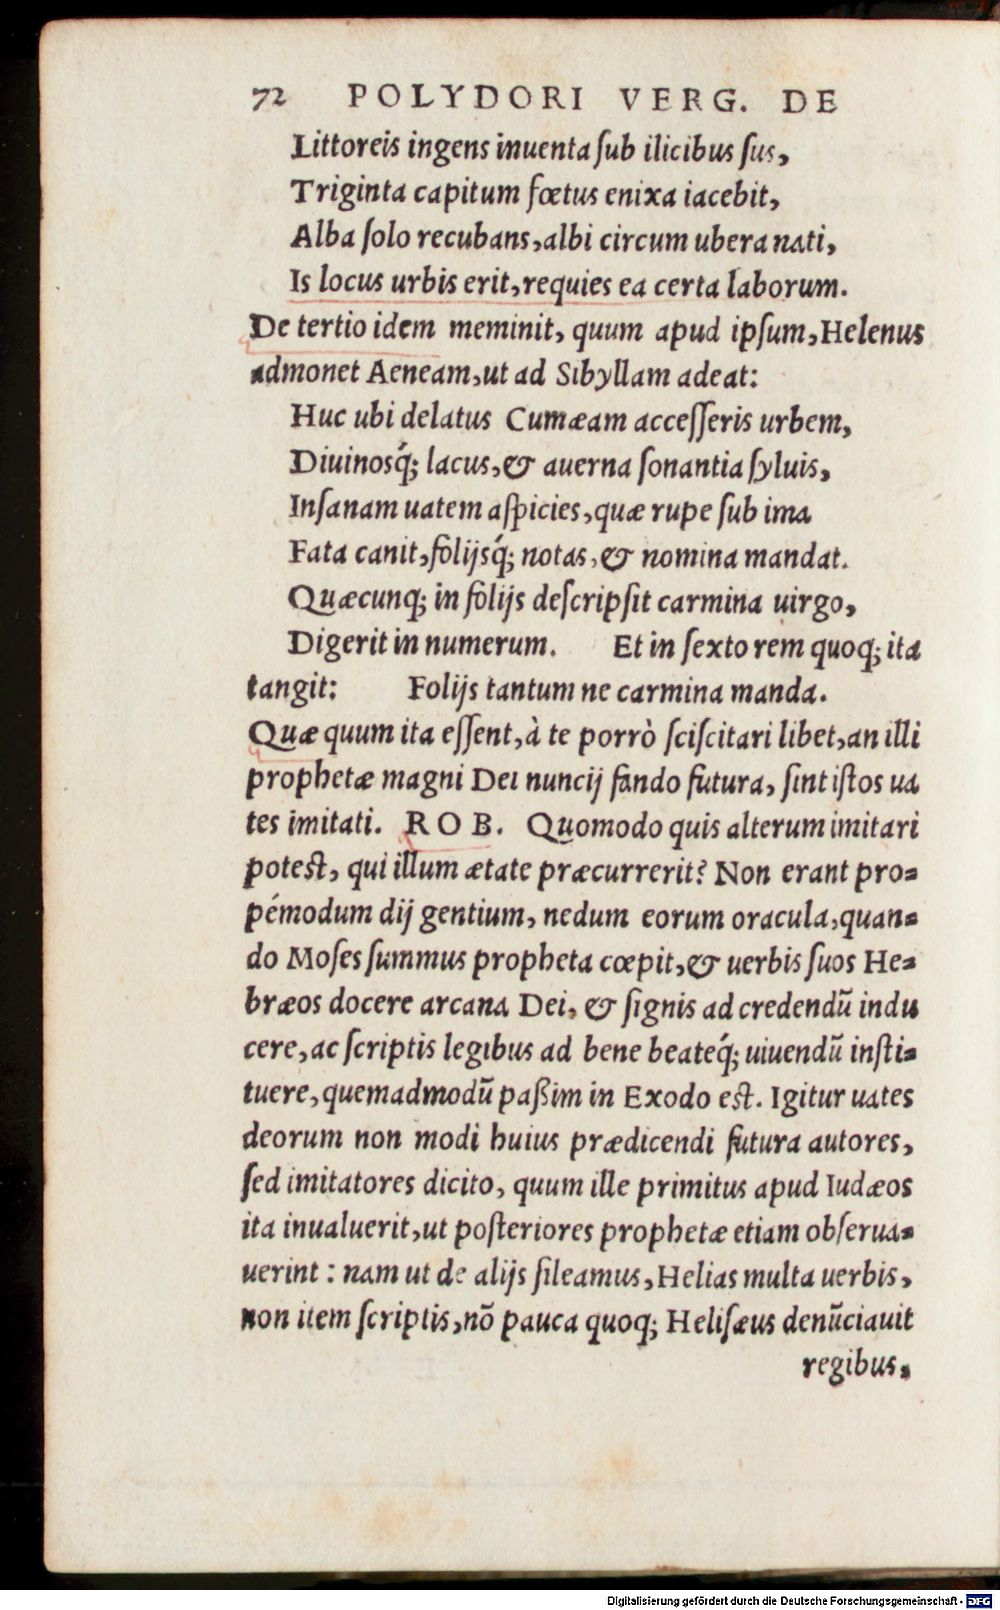 72 POLYDORI VERG. DE
Littoreis ingens inuenta ſub ilicibus ſus,
Triginta capitum fœtus enixa iacebit,
Alba ſolo recubans, albi circum ubera nati,
Is locus urbis erit, requies ea certa laborum.
De tertio idem meminit, quum apud ipſum, Helenus
admonet Aeneam, ut ad Sibyllam adeat:
Huc ubi delatus Cumæam acceſſeris urbem,
Diuinosq́; lacus, & auerna ſonantia ſyluis,
Inſanam uatem aſpicies, quæ rupe ſub ima
Fata canit, folijsq́; notas, & nomina mandat.
Quæcunq; in folijs deſcripſit carmina uirgo,
Digerit in numerum. Et in ſexto rem quoq; ita
tangit: Folijs tantum ne carmina manda.
Quæ quum ita eſſent, à te porrò ſciſcitari libet, an illi
prophetæ magni Dei nuncij fando futura, ſint iſtos ua
tes imitati. ROB. Quomodo quis alterum imitari
poteſt, qui illum ætate præcurrerit? Non erant pro=
pémodum dij gentium, nedum eorum oracula, quan=
do Moſes ſummus propheta cœpit, & uerbis ſuos He=
bræos docere arcana Dei, & ſignis ad credendū indu
cere, ac ſcriptis legibus ad bene beateq́; uiuendū inſti=
tuere, quemadmodū paßim in Exodo eſt. Igitur uates
deorum non modi huius prædicendi futura autores,
ſed imitatores dicito, quum ille primitus apud Iudæos
ita inualuerit, ut poſteriores prophetæ etiam obſerua=
uerint: nam ut de alijs ſileamus, Helias multa uerbis,
non item ſcriptis, nō pauca quoq; Heliſæus denūciauit
regibus,
Digitalisierung gefördert durch die Deutsche Forschungsgemeinschaft - DFG